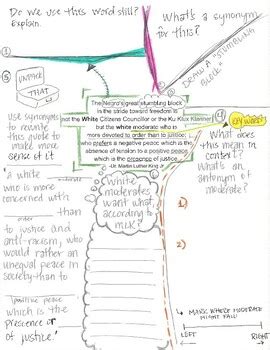 Do we use this word still?
Explain.
What's a synonym
for this?
1
DRAW A - STUMBLING
BLOCK
5
UNPACK
THAT
The Negro's great stumbling block
in the stride toward freedom is
not the White Citizens Councillor or the Ku Klux Klanner
but the white moderate who is
more devoted to order than to justice;
who prefers a negative peace which is the
absence of tension to a positive peace
which is the presence of justice.
-Dr. Martin Luther King, Jr.
4
KEY WORD?
use synonyms
to rewrite
this quote to
make more
sense of it
What does
this mean in
context?
What's an
antonym of
moderate?
1)
2)
White
moderates
want what,
according to
MLK?
"a white
who is more
concerned with
order
to justice and
anti-racism, who
would rather an
unequal peace in
society than to
positive peace
which is the
presence or
of justice."
MARK WHERE MODERATE
MIGHT FALL!
LEFT
RIGHT